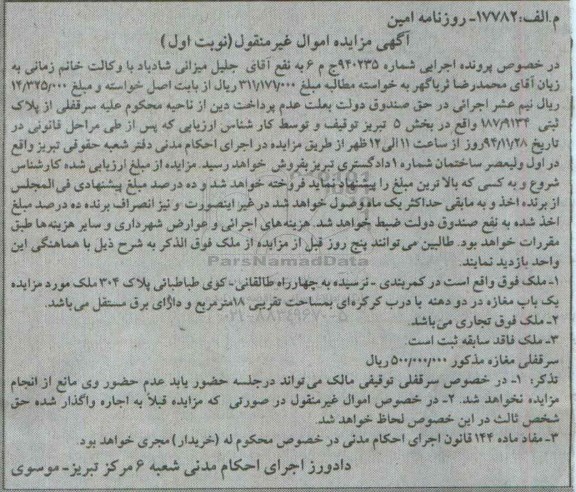 م.الف:۱۷۷۸۲- روزنامه امین
آگهی مزایده اموال غیرمنقول (نوبت اول)
در خصوص پرونده اجرایی شماره ۹۴۰۲۳۵ج م ۶ به نفع آقای جلیل میزانی شادباد با وکالت خانم زمانی به
زیان آقای محمدرضا ثریاگهر به خواسته مطالبه مبلغ ۳۱۱/۱۷۶/۰۰۰ ریال از بابت اصل خواسته و مبلغ ۱۲/۳۲۵/۰۰۰
ریال نیم عشر اجرائی در حق صندوق دولت بعلت عدم پرداخت دین از ناحیه محکوم علیه سرقفلی از پلاک
ثبتی ۱۸۷/۹۱۳۴ واقع در بخش ۵ تبریز توقیف و توسط کار شناس ارزیابی که پس از طی مراحل قانونی در
تاریخ ۹۴/۱۱/۲۸روز از ساعت ۱۱ الی۱۲ ظهر از طریق مزایده در اجرای احکام مدنی دفتر شعبه حقوقی تبریز واقع
در اول ولیعصر ساختمان شماره ۱دادگستری تبریز بفروش خواهد رسید. مزایده از مبلغ ارزیابی شده کارشناس
شروع و به کسی که بالا ترین مبلغ را پیشنهاد نماید فروخته خواهد شد و ده درصد مبلغ پیشنهادی فی المجلس
از برنده اخذ و به مابقی حداکثر یک ماه وصول خواهد شد در غیر اینصورت و نیز انصراف برنده ده درصد مبلغ
اخذ شده به نفع صندوق دولت ضبط خواهد شد. هزینه‌های اجرائی و عوارض شهرداری و سایر هزینه‌ها طبق
مقررات خواهد بود. طالبین می‌توانند پنج روز قبل از مزایده از ملک فوق الذکر به شرح ذیل با هماهنگی این
واحد بازدید نمایند.
ParsNamadData
۱- ملک فوق واقع است در کمربندی - نرسیده به چهارراه طالقانی- کوی طباطبائی پلاک ۳۰۴ ملک مورد مزایده
یک باب مغازه در دو دهنه با درب کرکره‌ای بمساحت تقریبی ۱۸مترمربع و دارای برق مستقل می‌باشد.
۰۲۱-۸۸۳۴۹۶۷۰-۵
۲- ملک فوق تجاری می‌باشد.
۳- ملک فاقد سابقه ثبت است.
سرقفلی مغازه مذکور ۵۰۰/۰۰۰/۰۰۰ ریال
تذکر: ۱- در خصوص سرقفلی توقیفی مالک می‌تواند درجلسه حضور یابد عدم حضور وی مانع از انجام
مزایده نخواهد شد. ۲- در خصوص اموال غیرمنقول در صورتی که مزایده قبلاً به اجاره واگذار شده حق
شخص ثالث در این خصوص لحاظ خواهد شد.
۳- مفاد ماده ۱۴۴ قانون اجرای احکام مدنی در خصوص محکوم له (خریدار) مجری خواهد بود.
دادورز اجرای احکام مدنی شعبه ۶ مرکز تبریز- موسوی